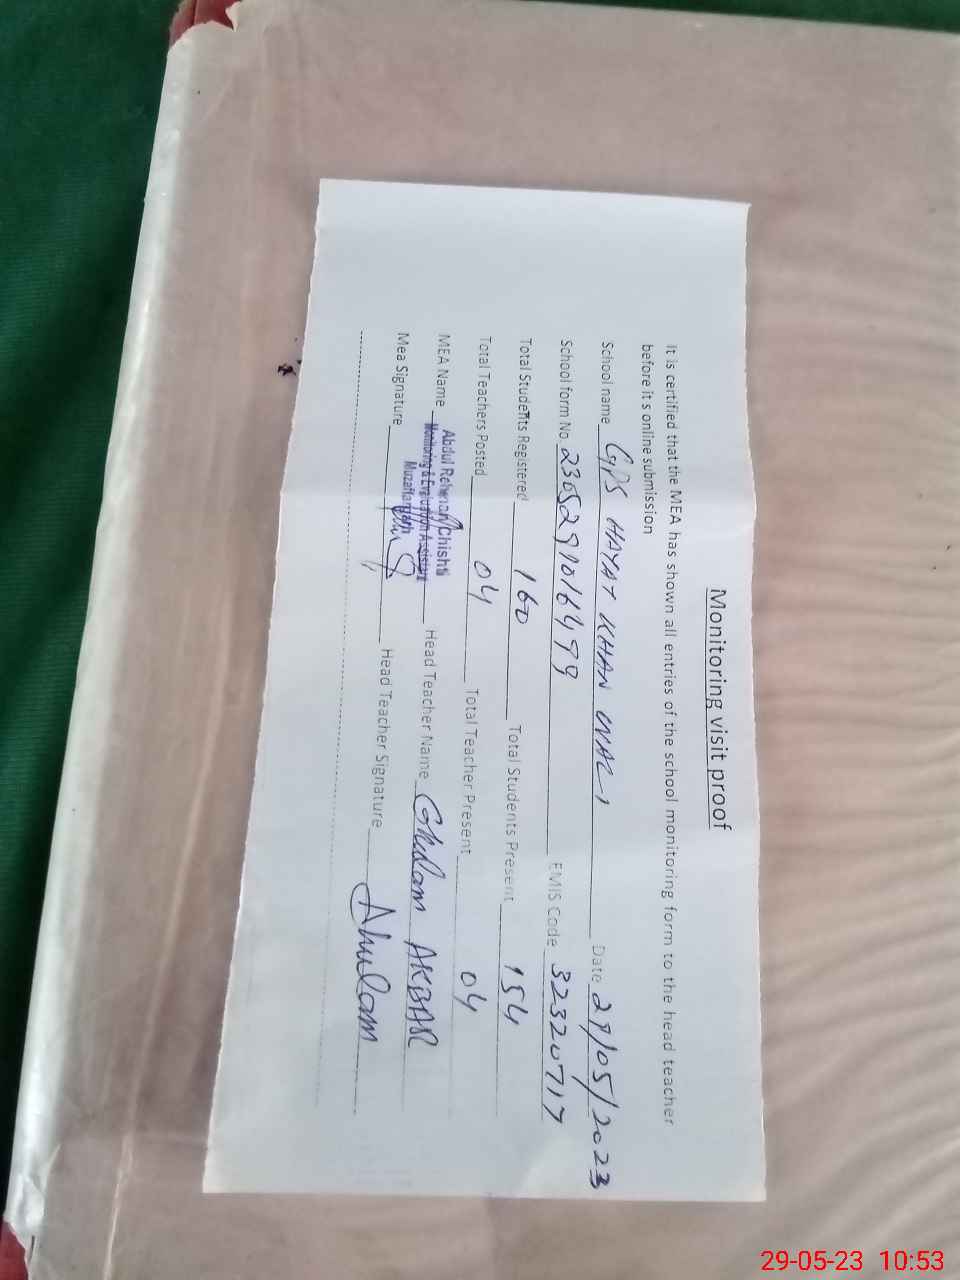 Monitoring visit proof
It is certified that the MEA has shown all entries of the school monitoring form to the head teacher
before it s online submission
School name GPS HAYAT KHAN WALI Date 29/05/2023
School form No. 2305291016499 EMIS Code 32320717
Total Students Registered 160 Total Students Present 154
Total Teachers Posted 04 Total Teacher Present 04
MEA Name Abdul Rehman Chishti Head Teacher Name Ghulam AKBAR
Monitoring & Evaluation Assistant
Muzaffargarh
Mea Signature Head Teacher Signature Ghulam
29-05-23 10:53